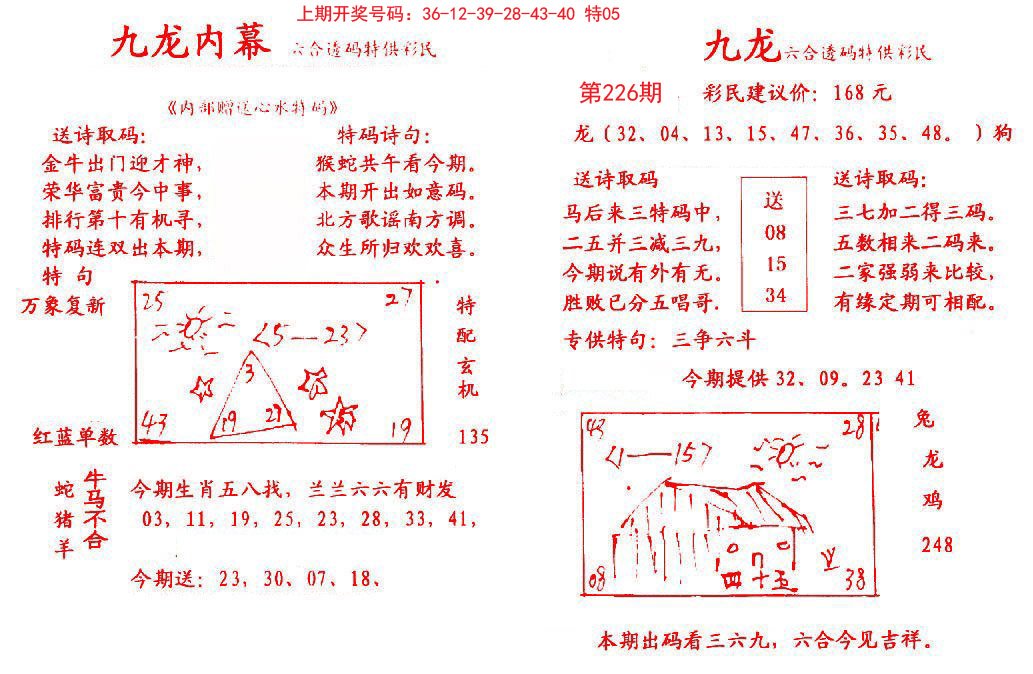 上期开奖号码：36-12-39-28-43-40 特05
九龙内幕 六合透码特供彩民
《内部赠送心水特码》
送诗取码：
金牛出门迎才神，
荣华富贵今中事，
排行第十有机寻，
特码连双出本期，
特码诗句：
猴蛇共午看今期。
本期开出如意码。
北方歌谣南方调。
众生所归欢欢喜。
特 句
万象复新
红蓝单数
25
27
〈5—23〉
3
19
21
43
19
特
配
玄
机
135
蛇
猪
羊
牛
马
不
合
今期生肖五八找，兰兰六六有财发
03，11，19，25，23，28，33，41，
今期送：23，30、07、18、
九龙 六合透码特供彩民
第226期 彩民建议价：168 元
龙（32、04、13、15、47、36、35、48。）狗
送诗取码
马后来三特码中，
二五并三减三九，
今期说有外有无。
胜败已分五唱哥.
送
08
15
34
送诗取码：
三七加二得三码。
五数相来二码来。
二家强弱来比较，
有缘定期可相配。
专供特句：三争六斗
今期提供 32、09。23 41
43
28
〈1—15〉
四十五
08
38
兔
龙
鸡
248
本期出码看三六九，六合今见吉祥。